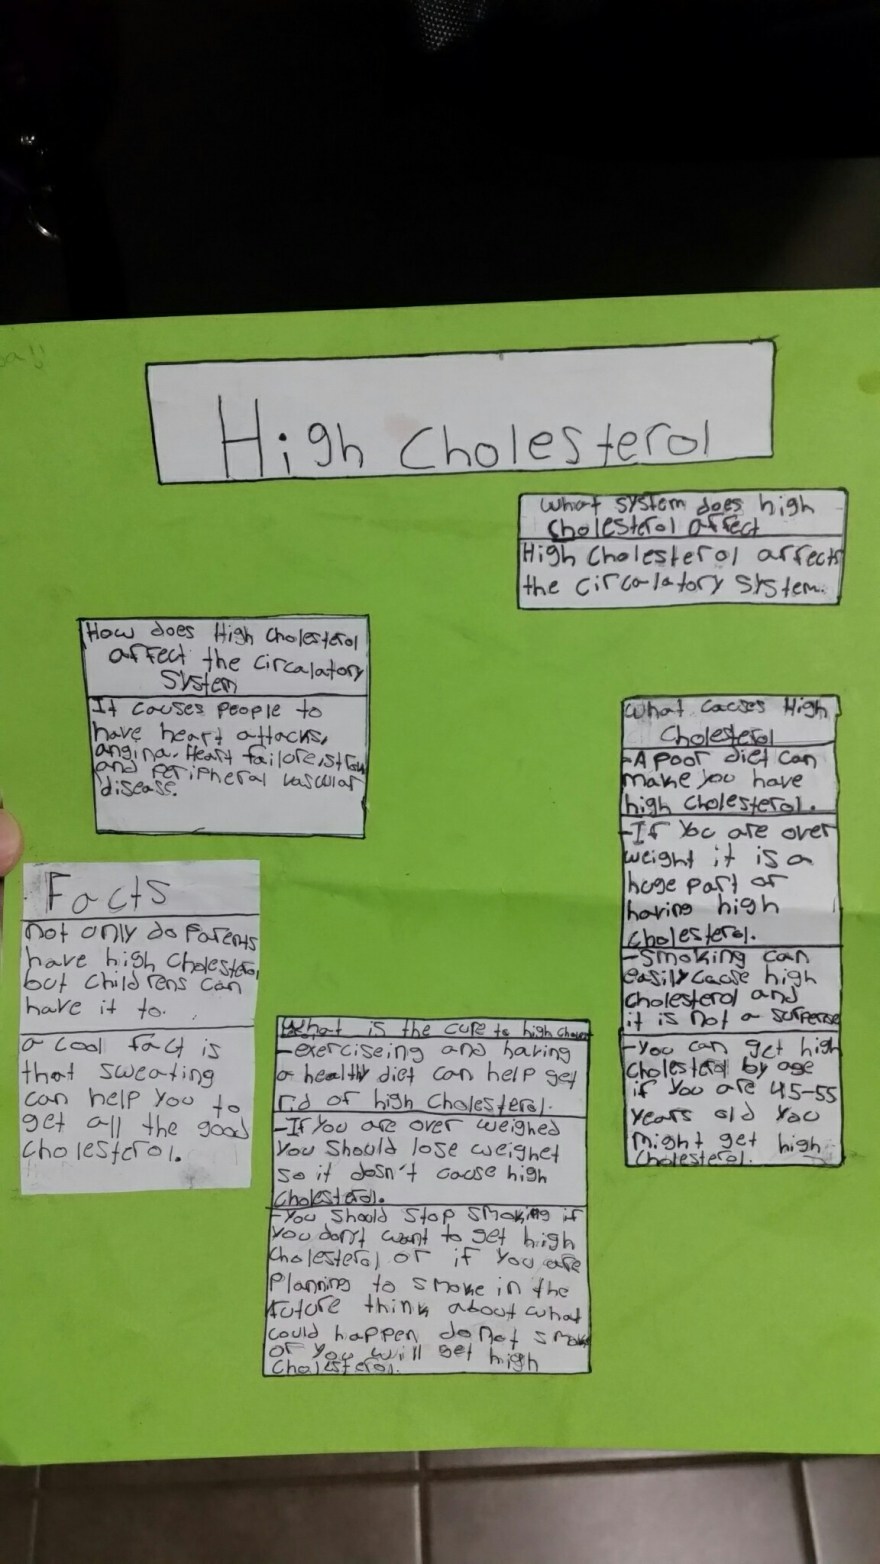 High Cholesterol
What system does high
Cholesterol affect
High Cholesterol affects
the circalatory system.
How does High Cholesterol
affect the circalatory
System
It causes people to
have heart attacks,
angina. Heart failore, strok
and peripheral vascular
disease.
What causes High
Cholesterol
-A poor diet can
make you have
high cholesterol.
-If you are over
weight it is a
huge part of
having high
cholesterol.
-Smoking can
easily cause high
cholesterol and
it is not a surprise
-You can get high
cholesterol by age
if you are 45-55
years old you
might get high
cholesterol.
Facts
Not only do Parents
have high cholesterol
but childrens can
have it to.
a cool fact is
that sweating
can help you to
get all the good
cholesterol.
What is the cure to high
-exerciseing and having
a healthy diet can help get
rid of high cholesterol.
-If you are over weighed
you should lose weighet
so it doesn't cause high
cholesterol.
-You should stop smoking if
you don't want to get high
cholesterol or if you are
Planning to smoke in the
future think about what
could happen do not smoke
or you will get high
cholesterol.